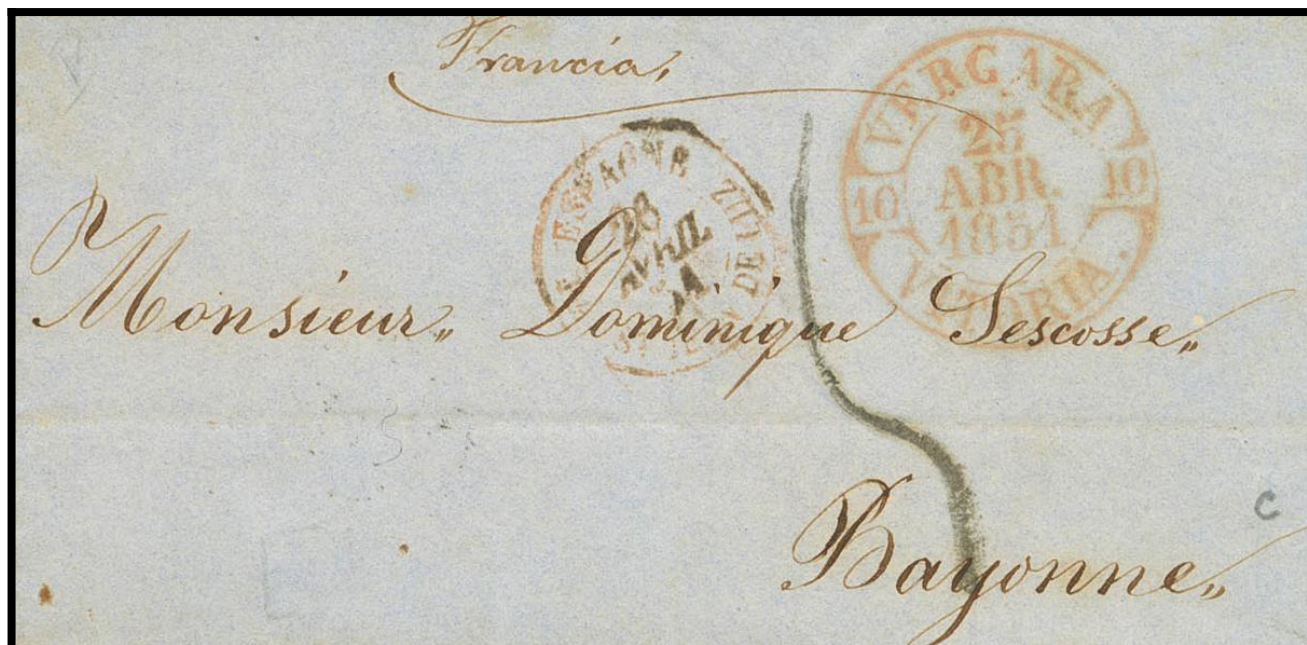 Francia,
VERGARA
25
ABR.
1851
10 10
VITORIA.
ESPAGNE
28
DE LUZ
Monsieur„ Dominique Lescosse„
Bayonne„
C